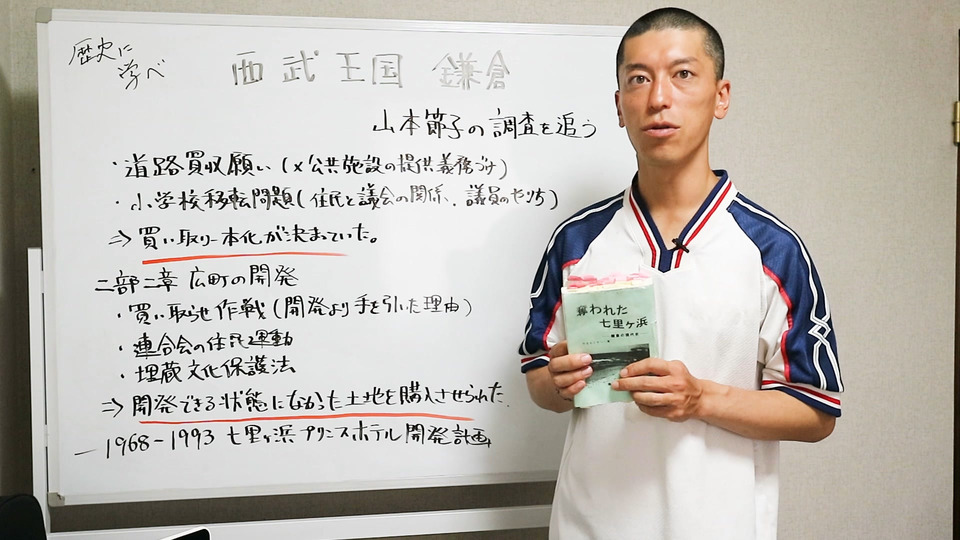 歴史に
学べ
西武王国 鎌倉
山本節子の調査を追う
・道路買収願い(×公共施設の提供義務づけ)
・小学校移転問題(住民と議会の関係、議員のやりち)
⇒買い取り一本化が決まっていた。
二部二章 広町の開発
・買い取らせ作戦(開発より手を引いた理由)
・連合会の住民運動
・埋蔵文化保護法
⇒開発できる状態になかった土地を購入させられた.
―1968-1993 七里ヶ浜プリンスホテル開発計画
奪われた
七里ヶ浜